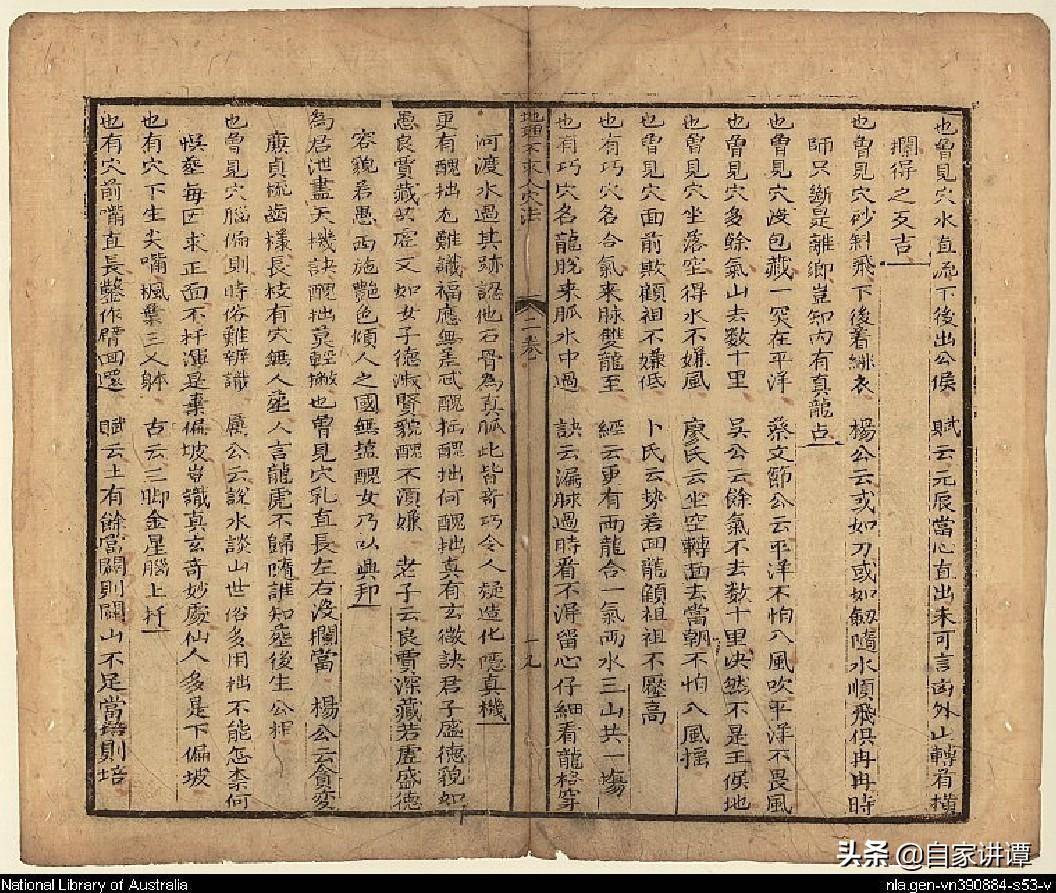 也曾見穴水直流下後出公侯　賦云元辰當心直出未可言凶外山轉有橫
攔得之反吉
也曾見穴砂斜飛下後着緋衣　楊公云或如刀或如劔隨水順飛俱冉冉時
師只斷是離鄉豈知內有真龍占
也曾見穴沒包藏一突在平洋　蔡文節公云平洋不怕八風吹平洋不畏風
也曾見穴多餘氣山去数十里　吳公云餘氣不去数十里决然不是王候地
也曾見穴坐落空得水不嫌風　廖氏云坐空轉面去當朝不怕八風搖
也曾見穴面前欺顧祖不嫌低　卜氏云势若囬龍顧祖祖不壓高
也有巧穴名合氣来脉雙龍至　經云更有两龍合一氣两水三山共一塲
也有巧穴名龍脫来脈水中過　訣云漏脉過時看不淂留心仔細看龍格穿
地理不求人穴法　二卷　一九
河渡水過其跡認他石骨為真脈此皆奇巧令人疑造化隱真機
更有醜拙九難識福應無差忒醜拙醜拙何醜拙真有玄微訣君子盛德貌如
愚良賈藏若虛文如女子德淑賢貌醜不須嫌　老子云良賈深藏若虛盛德
容貌若愚西施艶色傾人之國無塩醜女乃以興邦
為君泄盡天機訣醜拙莫輕撇也曾見穴乳直長左右沒攔當　楊公云貪変
廉貞梳齒樣長枝有穴無人塟人言龍虎不歸隨誰知塟後生公相
也曾見穴腦偏則時俗難辨識　厲公云說水談山世俗多用拙不能怎柰何
悞塟每因求正面不扦淮是棄偏坡豈識真玄奇妙處仙人多是下偏坡
也有穴下生尖嘴楓葉三乂躰　古云三脚金星腦上扦
也有穴前嘴直長鑿作臂囬還　賦云土有餘當闢則闢山不足當培則培
头条 @自家讲谭
National Library of Australia
nla.gen-vn390884-s53-v